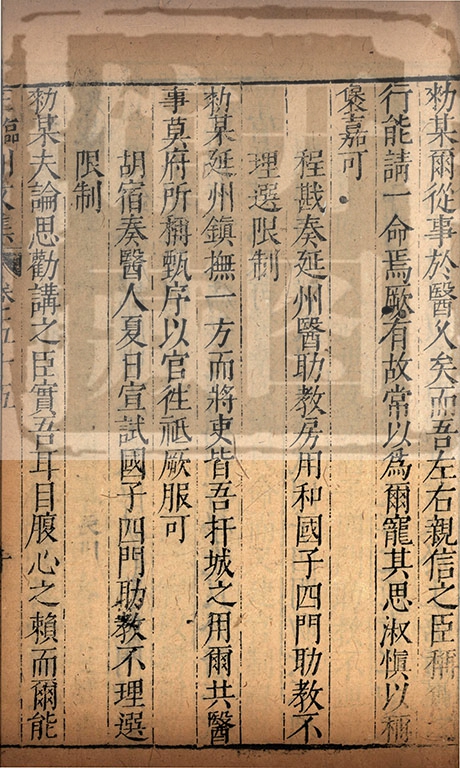 勑某爾從事於醫久矣而吾左右親信之臣稱爾
行能請一命焉厥有故常以爲爾寵其思淑愼以稱
褒嘉可
程戡奏延州醫助教房用和國子四門助教不
理選限制
勑某延州鎮撫一方而將吏皆吾扞城之用爾共醫
事莫府所稱甄序以官徃祗厥服可
胡宿奏醫人夏日宣試國子四門助教不理選
限制
勑某夫論思勸講之臣實吾耳目腹心之賴而爾能
王臨川文集 卷之五十五